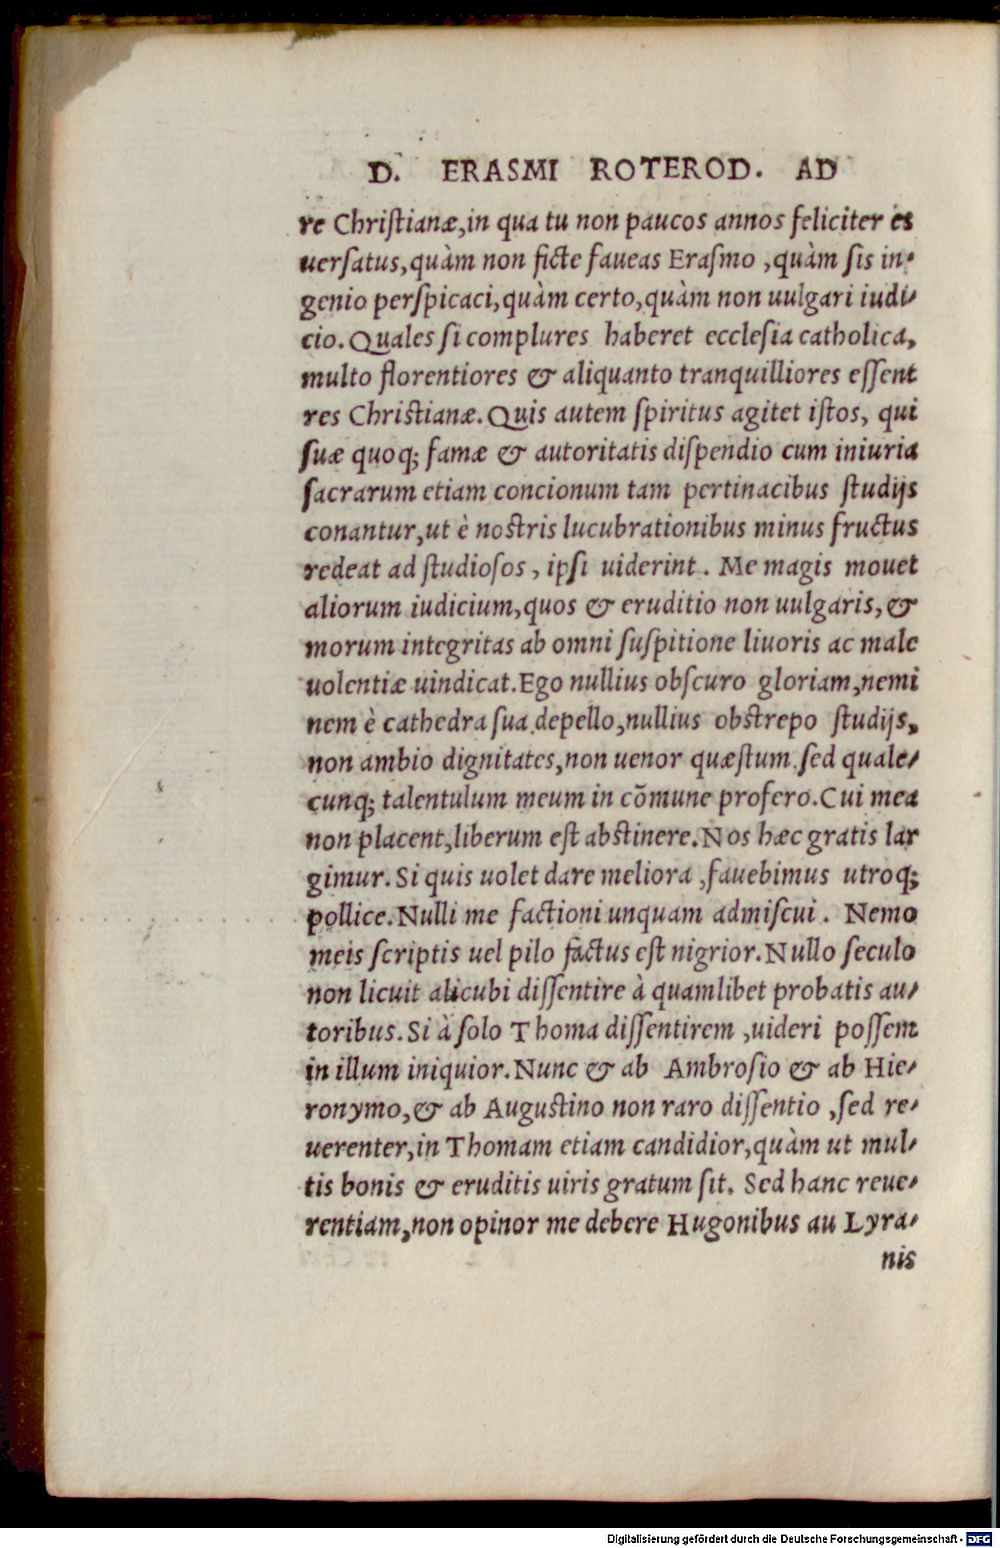 D. ERASMI ROTEROD. AD
re Christianæ,in qua tu non paucos annos feliciter es
uersatus,quàm non ficte faueas Erasmo ,quàm sis in⸗
genio perspicaci,quàm certo,quàm non uulgari iudi⸗
cio.Quales si complures haberet ecclesia catholica,
multo florentiores & aliquanto tranquilliores essent
res Christianæ.Quis autem spiritus agitet istos, qui
suæ quoq; famæ & autoritatis dispendio cum iniuria
sacrarum etiam concionum tam pertinacibus studijs
conantur,ut è nostris lucubrationibus minus fructus
redeat ad studiosos , ipsi uiderint. Me magis mouet
aliorum iudicium,quos & eruditio non uulgaris,&
morum integritas ab omni suspitione liuoris ac male
uolentiæ uindicat.Ego nullius obscuro gloriam,nemi
nem è cathedra sua depello,nullius obstrepo studijs,
non ambio dignitates,non uenor quæstum.sed quale⸗
cunq; talentulum meum in cōmune profero.Cui mea
non placent,liberum est abstinere.Nos hæc gratis lar
gimur.Si quis uolet dare meliora ,fauebimus utroq;
pollice.Nulli me factioni unquam admiscui. Nemo
meis scriptis uel pilo factus est nigrior.Nullo seculo
non licuit alicubi dissentire à quamlibet probatis au⸗
toribus.Si à solo Thoma dissentirem ,uideri possem
in illum iniquior.Nunc & ab Ambrosio & ab Hie⸗
ronymo,& ab Augustino non raro dissentio ,sed re⸗
uerenter,in Thomam etiam candidior,quàm ut mul⸗
tis bonis & eruditis uiris gratum sit. Sed hanc reue⸗
rentiam,non opinor me debere Hugonibus au Lyra⸗
nis
Digitalisierung gefördert durch die Deutsche Forschungsgemeinschaft - DFG